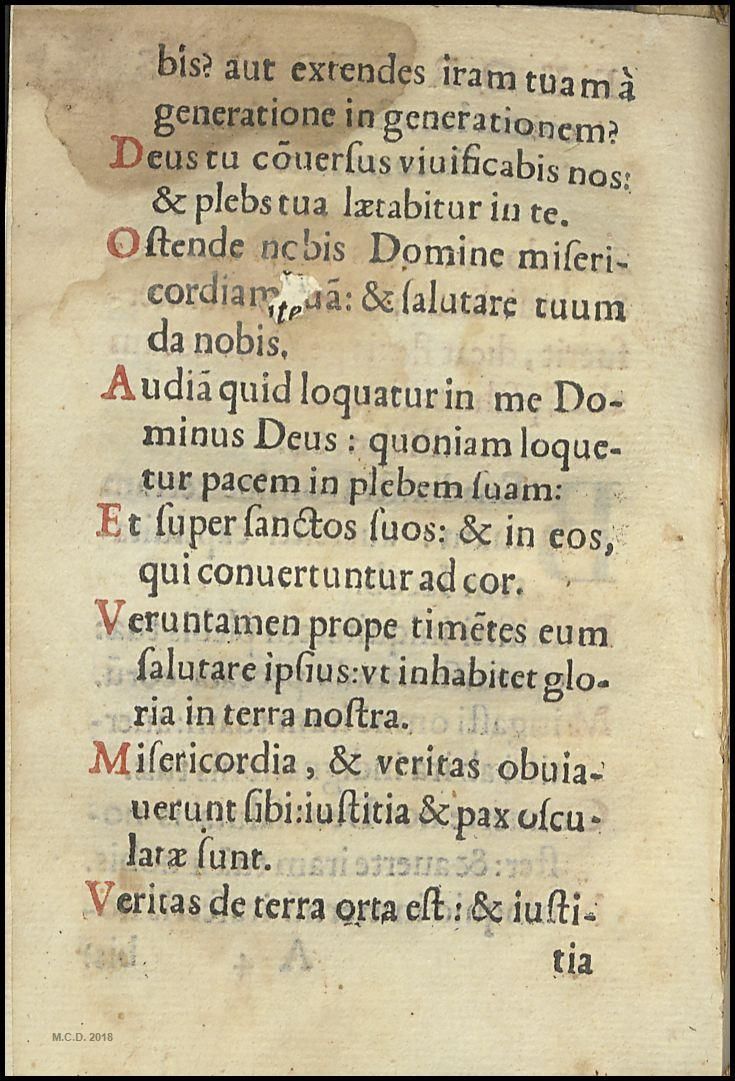 bis? aut extendes iram tuam à
generatione in generationem?
Deus tu cōuerſus viuificabis nos:
& plebs tua lætabitur in te.
Oſtende nobis Domine miſeri-
cordiam tuã: & ſalutare tuum
da nobis.
Audiã quid loquatur in me Do-
minus Deus : quoniam loque-
tur pacem in plebem ſuam:
Et ſuper ſanctos ſuos: & in eos,
qui conuertuntur ad cor.
Veruntamen prope timẽtes eum
ſalutare ipſius: vt inhabitet glo-
ria in terra noſtra.
Miſericordia, & veritas obuia-
uerunt ſibi: iuſtitia & pax oſcu-
latæ ſunt.
Veritas de terra orta eſt : & iuſti-
tia
M.C.D. 2018